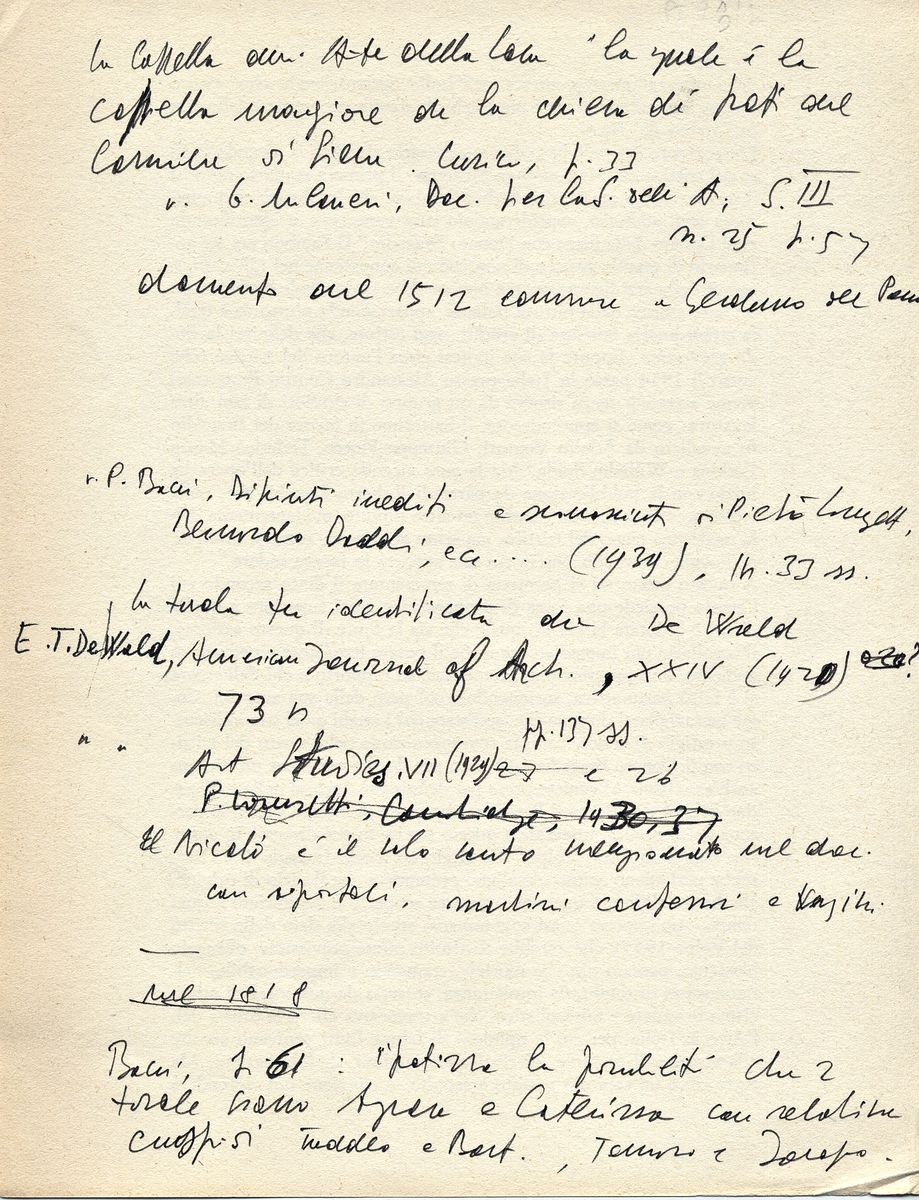 La Cappella dell'Arte della Lana "la quale è la
cappella maggiore de la chiesa di frati del
Carmine di Siena. p. 33
v. G. Milanesi, Doc. per la S. dell'A; S. III
n. 25 p. 57
documento del 1512 a Girolamo del
v. P. Bacci, Dipinti inediti e sconosciuti di Pietro Lorenzetti,
Bernardo Daddi, ecc.... (1939), pp. 33 ss.
La tavola fu identificata da De Wald
E. T. De Wald, American Journal of Arch., XXIV (1920)
73 n
" " pp. 137 ss.
Art Studies. VII (1929) 27 e 26
P. Lorenzetti, Cambridge, 1930, 37
Il Nicolò è il solo santo menzionato nel doc.
con apostoli, martiri confessori e Vergini.
nel 1818
Bacci, p. 61 : ipotizza la possibilità che 2
tavole siano Agnese e Caterina con relative
cuspidi Taddeo e Bart., Tomaso e Jacopo.